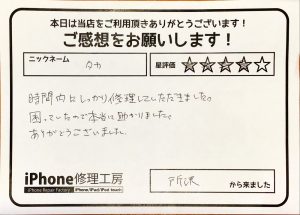 本日は当店をご利用頂きありがとうございます!
ご感想をお願いします!
ニックネーム タカ 星評価 ★★★★☆
時間内にしっかり修理していただきました。
困っていたので本当に助かりました。
ありがとうございました。
iPhone修理工房
iPhone Repair Factory iPhone/iPad/iPod touch
所沢 から来ました